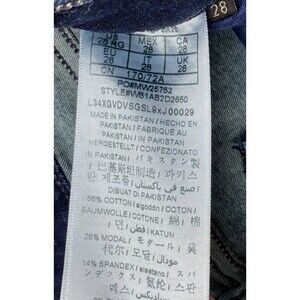 28
US MEX CA
28 RG 28 28
EU IT UK
28 28 28
CN 170/72A
PO#MW25752
STYLE#WB1AB2D2650
L34XGVDVSGSL9xJ00029
MADE IN PAKISTAN / HECHO EN
PAKISTAN / FABRIQUÉ AU
PAKISTAN / IN PAKISTAN
HERGESTELLT / CONFEZIONATO
IN PAKISTAN / パキスタン製
/ 巴基斯坦制造 / 파키스
탄 제조품 /
DIBUAT DI PAKISTAN
COTTON / algodón / COTON /
BAUMWOLLE / COTONE / 綿 / 棉
/ 면 / / KATUN
MODAL / モダール / 莫
代尔 / 모달 /
14% SPANDEX / elastano / ス
パンデックス / 氨纶 / 스판